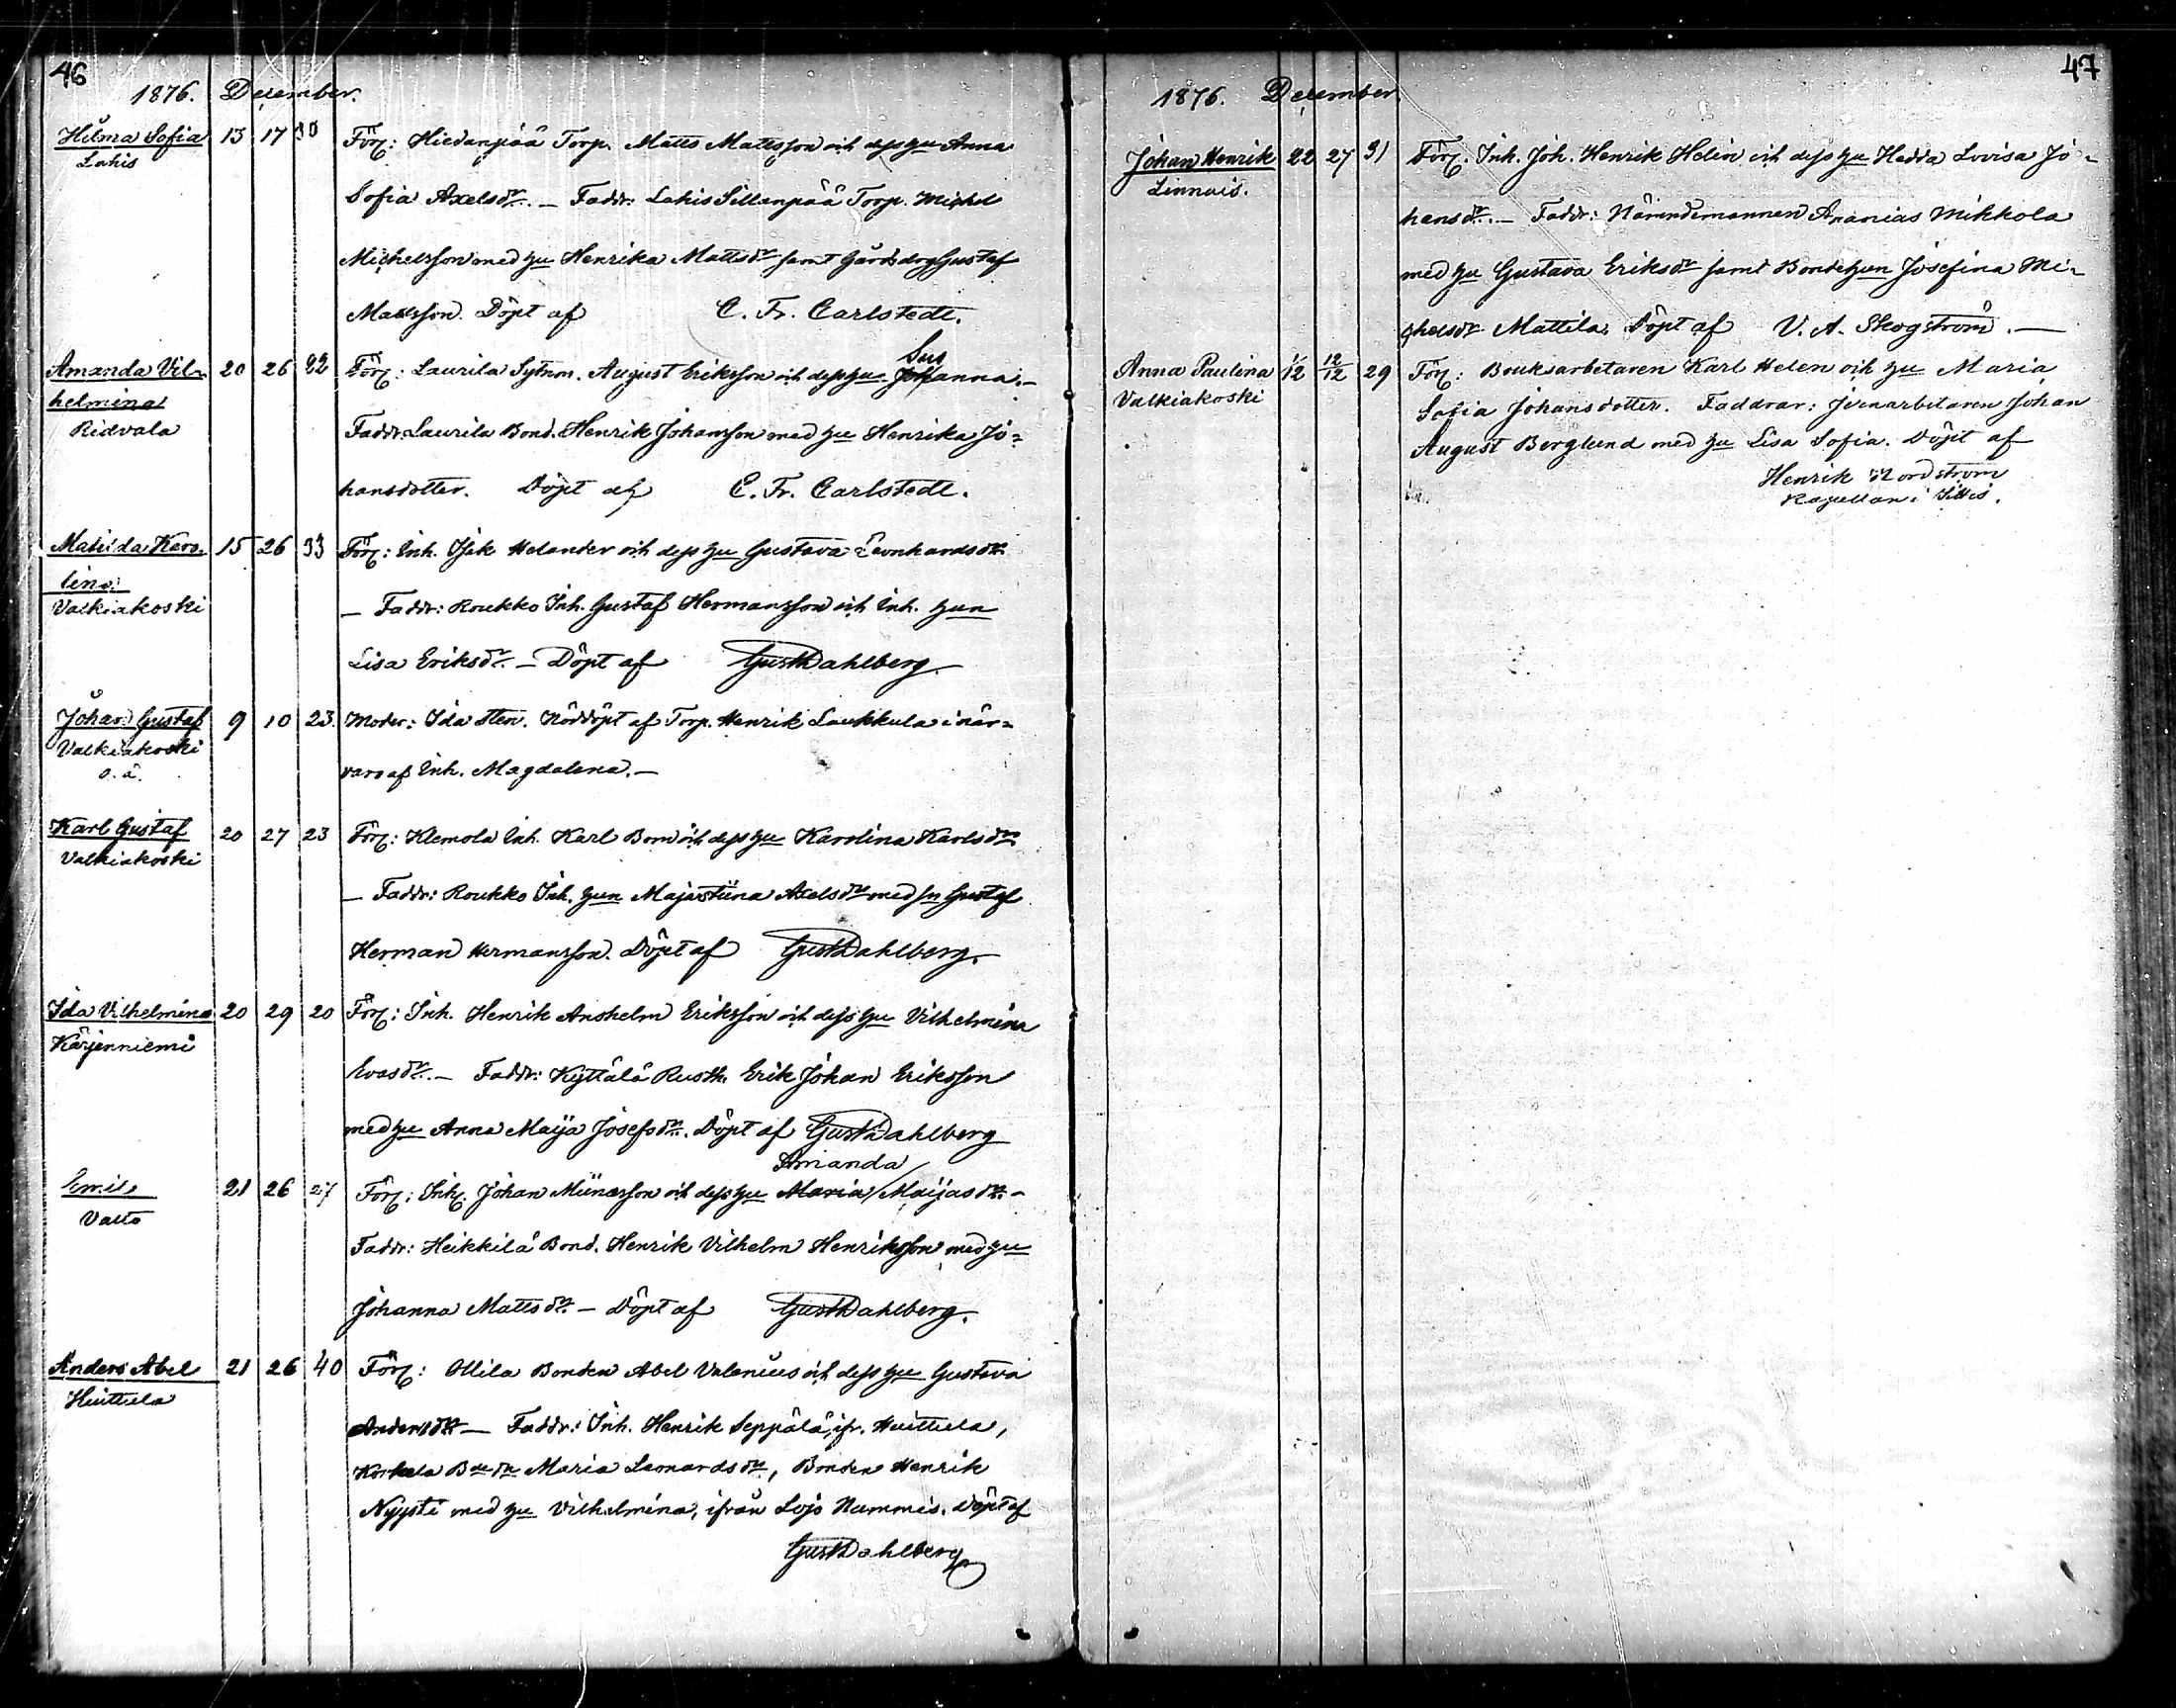 46
1876. December.
Hilma Sofia 13 17 30 Förs: Hiedanpää Torp. Matts Mattsson och dess hu Anna
Lahis
Sofia Axelsdr. — Faddr: Lahis Sillanpää Torp. Michel
Michelsson med hu Henrika Mattsdr samt Gårdsdrg Gustaf
Mattsson. Döpt af C. Fr. Carlstedt.
Sus
Amanda Vil- 20 26 22 Förs: Laurila Sytnm. August Eriksson och dess hu Johanna. —
helmina
Ridvala
Faddr: Laurila Bond. Henrik Johansson med hu Henrika Jo-
hansdotter. Döpt af C. Fr. Carlstedt.
Matilda Karo- 15 26 33 Förs: Inh. Isak Helander och dess hu Gustava Leonhardsdr
lina
Valkiakoski
— Faddr: Roukko Inh. Gustaf Hermansson och Inh. hun
Lisa Eriksdr. — Döpt af Gust Dahlberg.
Johan Gustaf 9 10 23. Moder: Ida Sten. Nöddöpt af Torp. Henrik Laukkula i när-
Valkiakoski
o. ä.
varo af Inh. Magdalena. —
Karl Gustaf 20 27 23 Förs: Klemola Inh. Karl Bom och dess hu Karolina Karlsdr
Valkiakoski
— Faddr: Roukko Inh. hun Majastiina Axelsdr med sn Gustaf
Herman Hermansson. Döpt af Gust Dahlberg.
Ida Vilhelmina 20 29 20 Förs: Inh. Henrik Anshelm Eriksson och dess hu Vilhelmina
Kärjenniemi
Evasdr. — Faddr: Kyttälä Rusth. Erik Johan Eriksson
med hu Anna Maija Josefsdr. Döpt af Gust Dahlberg
Amanda
Emil 21 26 27 Förs: Inh. Johan Miinasson och dess hu Maria/Maijasdr. —
Valto
Faddr: Heikkilä Bond. Henrik Vilhelm Henriksson med hu
Johanna Mattsdr. — Döpt af Gust Dahlberg.
Anders Abel 21 26 40 Förs: Ollila Bonden Abel Valenius och dess hu Gustava
Huittula
Andersdr — Faddr: Inh. Henrik Seppälä, ifr. Huittula,
Korkela Bdedr Maria Leonardsdr, Bonden Henrik
Nyysti med hu Vilhelmina, ifrån Lojo Nummis. Döpt af
Gust Dahlberg
47
1876. December
Johan Henrik 22 27 31 Förs. Inh. Joh. Henrik Helin och dess hu Hedda Lovisa Jo-
Linnais.
hansdr. — Faddr: Nämndemannen Ananias Mikkola
med hu Gustava Eriksdr samt Bondehun Josefina Mi-
chelsdr Mattila. Döpt af V. A. Skogström. —
Anna Paulina 1/12 12/12 29 Förs: Bruksarbetaren Karl Helen och hu Maria
Valkiakoski
Sofia Johansdotter. Faddrar: Jernarbetaren Johan
August Berglund med hu Lisa Sofia. Döpt af
Henrik Nordström
Kapellan i Sittis.